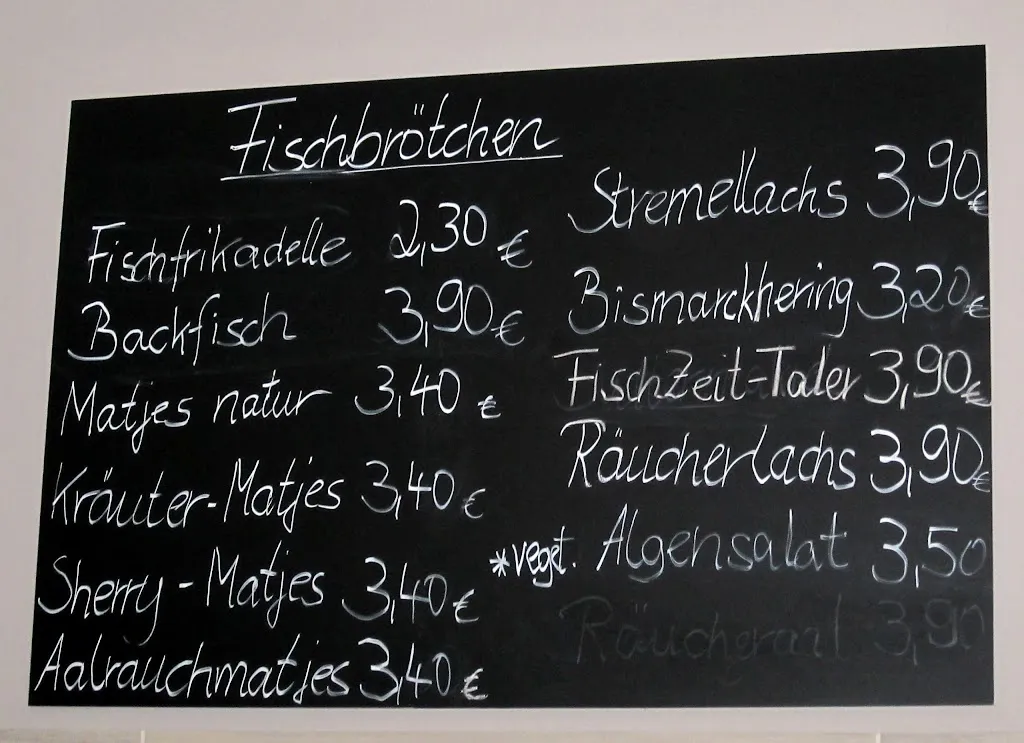 Fischbrötchen
Fischfrikadelle 2,30 €
Backfisch 3,90 €
Matjes natur 3,40 €
Kräuter-Matjes 3,40 €
Sherry-Matjes 3,40 €
Aalrauchmatjes 3,40 €
Stremellachs 3,90 €
Bismarckhering 3,20 €
FischZeit-Taler 3,90 €
Räucherlachs 3,90 €
*veget. Algensalat 3,50
Räucheraal 3,90